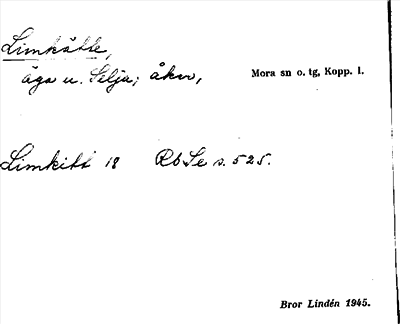 Limkätte,
äga u. Selja; åkv, Mora sn o. tg, Kopp. l.
Limkitt 18 Rb Se s. 525.
Bror Lindén 1945.